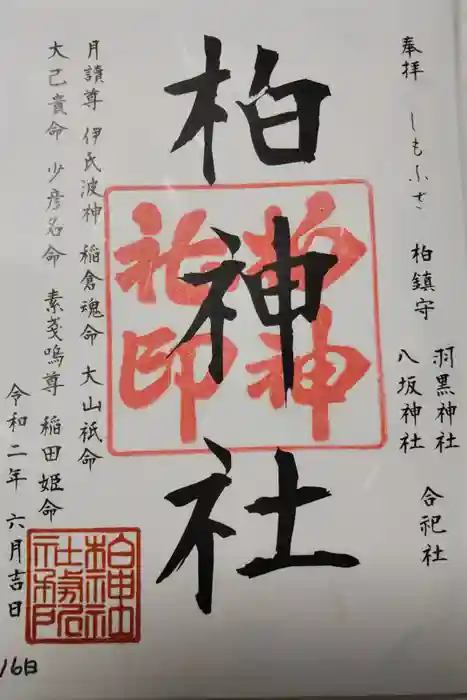 奉拝 しもふさ 柏鎮守
羽黒神社
八坂神社
合祀社
柏神社
柏神社印
月讀尊 伊氐波神 稲倉魂命 大山祇命
大己貴命 少彦名命 素戔嗚尊 稲田姫命
令和二年 六月吉日
柏神社社務所之印
16日